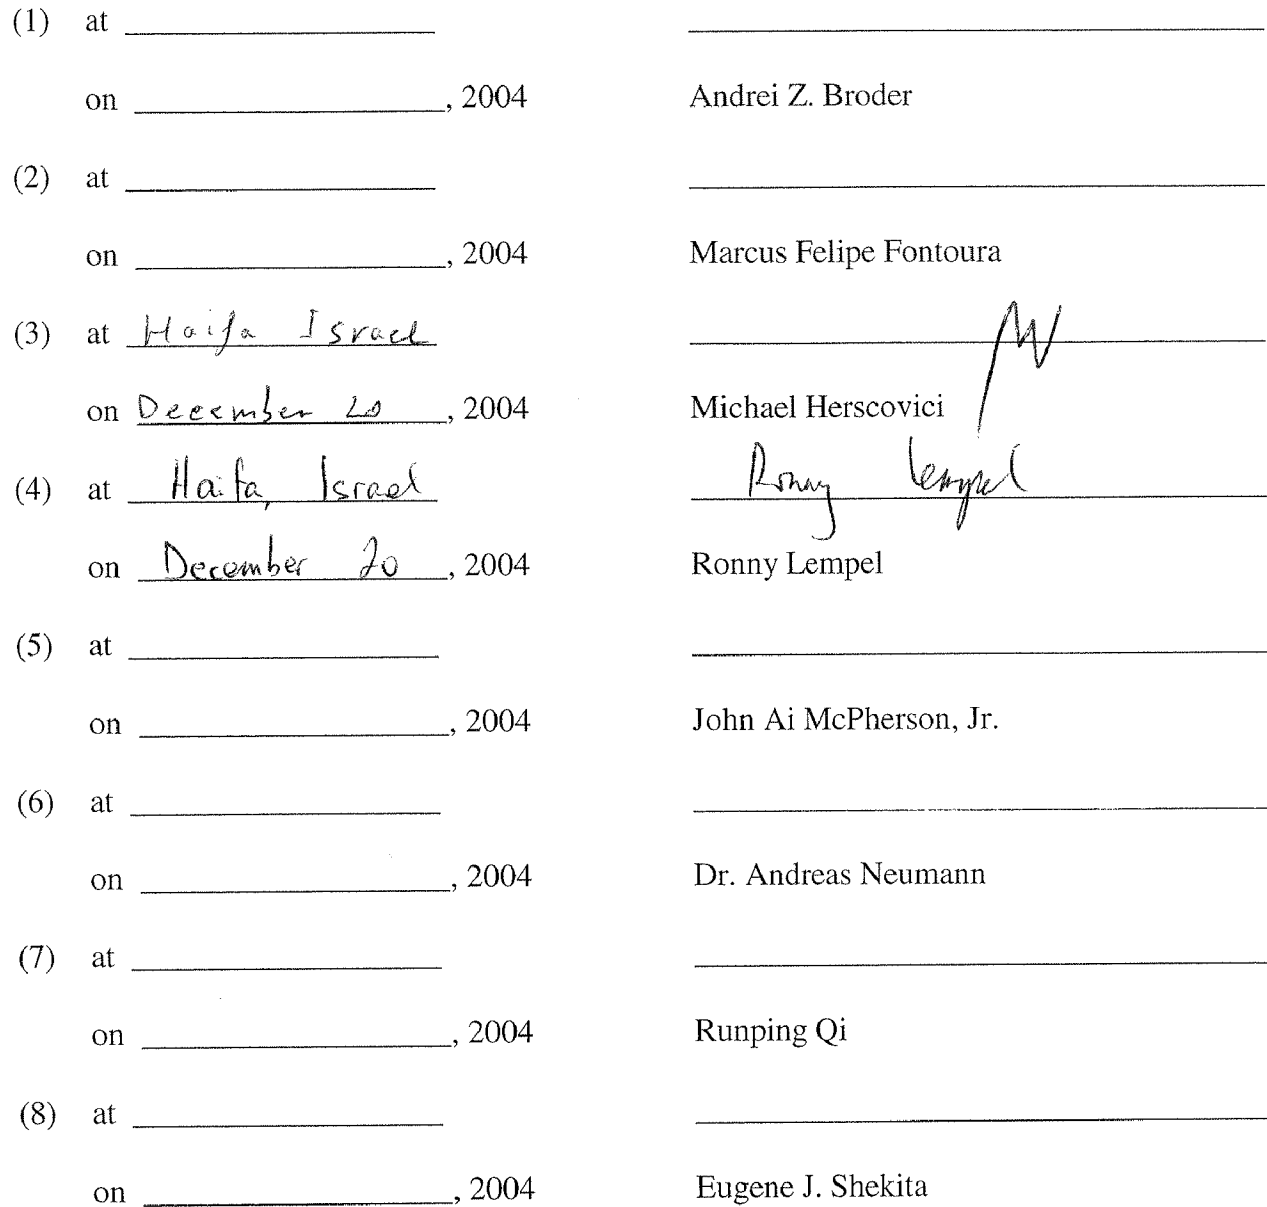 (1) at
on , 2004 Andrei Z. Broder
(2) at
on , 2004 Marcus Felipe Fontoura
(3) at Haifa Israel
on December 20, 2004 Michael Herscovici
(4) at Haifa, Israel Ronny Lempel
on December 20, 2004 Ronny Lempel
(5) at
on , 2004 John Ai McPherson, Jr.
(6) at
on , 2004 Dr. Andreas Neumann
(7) at
on , 2004 Runping Qi
(8) at
on , 2004 Eugene J. Shekita